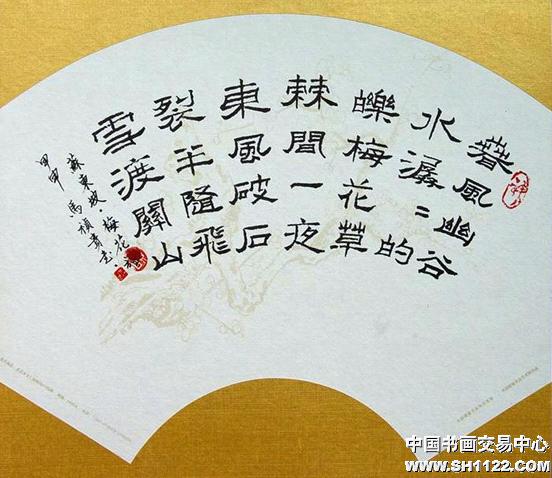 萅風幽谷
水潺:的
皪梅花草
棘間一夜
東風破石
裂半隨飛
雪渡關山
蘇東坡·梅花·
甲申 馬禎貴書
中国书画交易中心
WWW.SH1122.COM